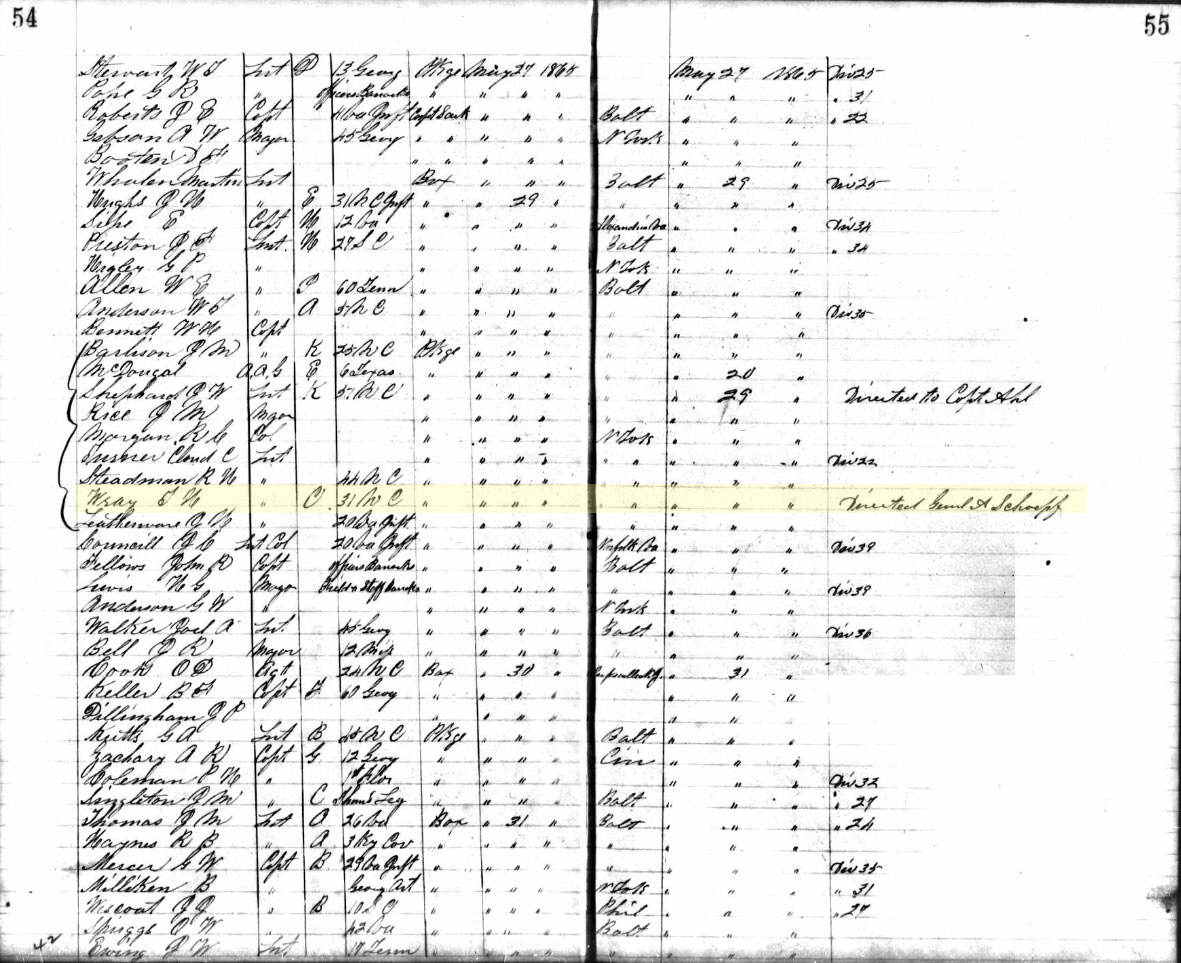 54 55
Stewart W S Lut D 13 Georg Pkge May 27 1865 May 27 1865 Div 25
Pope G R " Officers Barracks " " " " " " " " 31
Roberts J E Capt 41 Va Inft " " " Balt " " " " 22
Gibson A W Major 45 Georg " " " " " N York " " "
" " " " " " " "
Whalen Martin Lut Box " " " Balt " 29 " Div 25
Hughs J H " E 31 N C Inft " " 29 " " " " "
Sipe E Capt H 12 Va " " " " Alexandria Va " " " Div 34
Preston J F Lut. H 27 S C " " " " Balt " " " " 34
Higley G P " " " " " N York " " "
Allen W E " 60 Tenn " " " " Balt " " "
Anderson W S " A 5 N C " " " " " " " " Div 35
Bennett W H Capt " " " " " " " "
J M " K 25 N C Pkge " " " " " " "
McDougal A.A.G E 6 Texas " " " " " " 20 "
Shephard J W Lut K 57 N C " " " " " " 29 " Directed to Capt Ahl
Rice J M Major " " " " " " " "
Morgan R C Col " " " " N York " " "
Cloud C Lut " " " " " " " " " Div 22
Steadman R H " 44 N C " " " " " " " "
Wray S H " C 31 N C " " " " " " " " " Directed Genl A Schoepf
J H " 20 Va Inft " " " " " " " "
Councill J C Lut Col 26 Va Inft " " " " Norfolk Va " " " Div 39
Fellows John R Capt Officers Barracks " " " " Balt " " "
Lewis H G Major Field & Staff Barracks " " " " " " " " Div 39
Anderson G W " " " " " N York " " "
Walker Joel A Lut. 45 Georg " " " " Balt " " " Div 36
Bell J R Major 12 Miss " " " " " " " "
Cook O D Agt 24 N C Box " 30 " " 31 "
Keller B F Capt F 60 Georg " " " " " " "
Dillingham J P " " " " " " "
G A Lut B 45 N C Pkge " " " Balt " " "
Zachary A R Capt G 12 Georg " " " " Cin " " "
Coleman P H " 1st Flor " " " " " " " Div 32
Singleton J M " C Leg " " " " Balt " " " " 27
Thomas J M Lut A 26 Va Box " 31 " Balt " " " " 24
Haynes R B " A 3 Ky Cav " " " " " " " "
Mercer G W Capt B 29 Va Inft " " " " " " " " Div 35
Milliken B " Georg Art " " " " N York " " " " 31
Wescoat J J " B " " " " Phil " " " " 27
Spriggs O W " 42 Va " " " " Balt " " "
42 Ewing J W Lut. Tenn " " " " " " " "